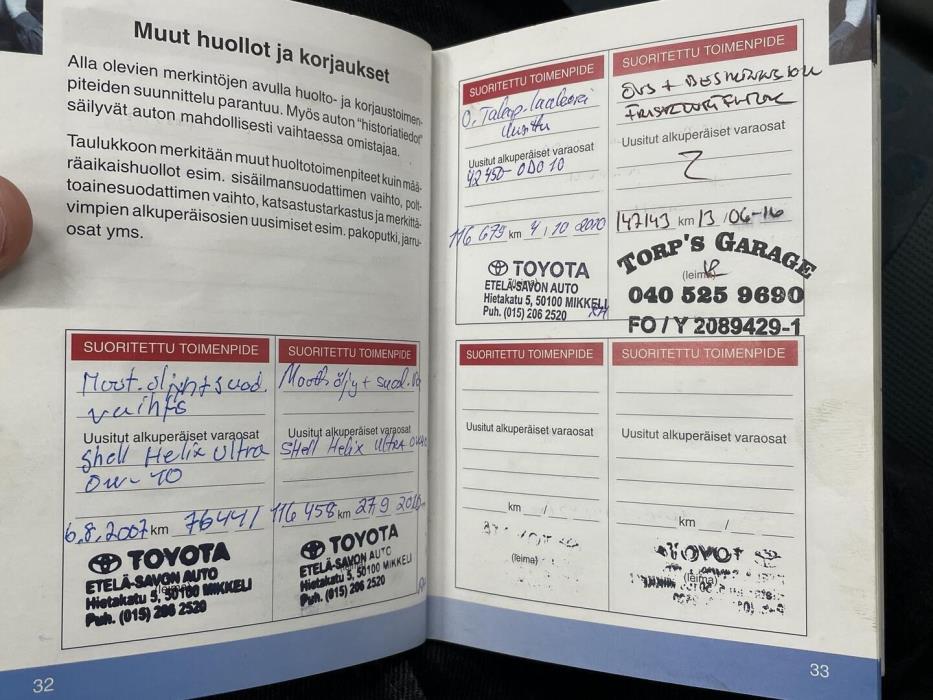 Muut huollot ja korjaukset
Alla olevien merkintöjen avulla huolto- ja korjaustoimen-
piteiden suunnittelu parantuu. Myös auton "historiatiedot"
säilyvät auton mahdollisesti vaihtaessa omistajaa.
Taulukkoon merkitään muut huoltotoimenpiteet kuin mää-
räaikaishuollot esim. sisäilmansuodattimen vaihto, polt-
toainesuodattimen vaihto, katsastustarkastus ja merkittä-
vimpien alkuperäisosien uusimiset esim. pakoputki, jarru-
osat yms.
SUORITETTU TOIMENPIDE
Moot. öljyn+suod.
vaihto
Uusitut alkuperäiset varaosat
Shell Helix Ultra
0w-40
6.8.2007 km 76441
TOYOTA
ETELÄ-SAVON AUTO
(leima)
Hietakatu 5, 50100 MIKKELI
Puh. (015) 206 2520
SUORITETTU TOIMENPIDE
Mooth öljy + suod.
Uusitut alkuperäiset varaosat
SHell Helix Ultra
116 458 km 27 9
TOYOTA
ETELÄ-SAVON AUTO
Hietakatu 5, 50100 MIKKELI
Puh. (015) 206 2520
32
SUORITETTU TOIMENPIDE
Uusitut alkuperäiset varaosat
42450-0D010
116 679 km 4 / 10 2010
TOYOTA
(leima)
ETELÄ-SAVON AUTO
Hietakatu 5, 50100 MIKKELI
Puh. (015) 206 2520
SUORITETTU TOIMENPIDE
Uusitut alkuperäiset varaosat
147143 km 13 / 06-16
TORP'S GARAGE
(leima)
040 525 9690
FO / Y 2089429-1
SUORITETTU TOIMENPIDE
Uusitut alkuperäiset varaosat
km /
(leima)
SUORITETTU TOIMENPIDE
Uusitut alkuperäiset varaosat
km /
(leima)
33